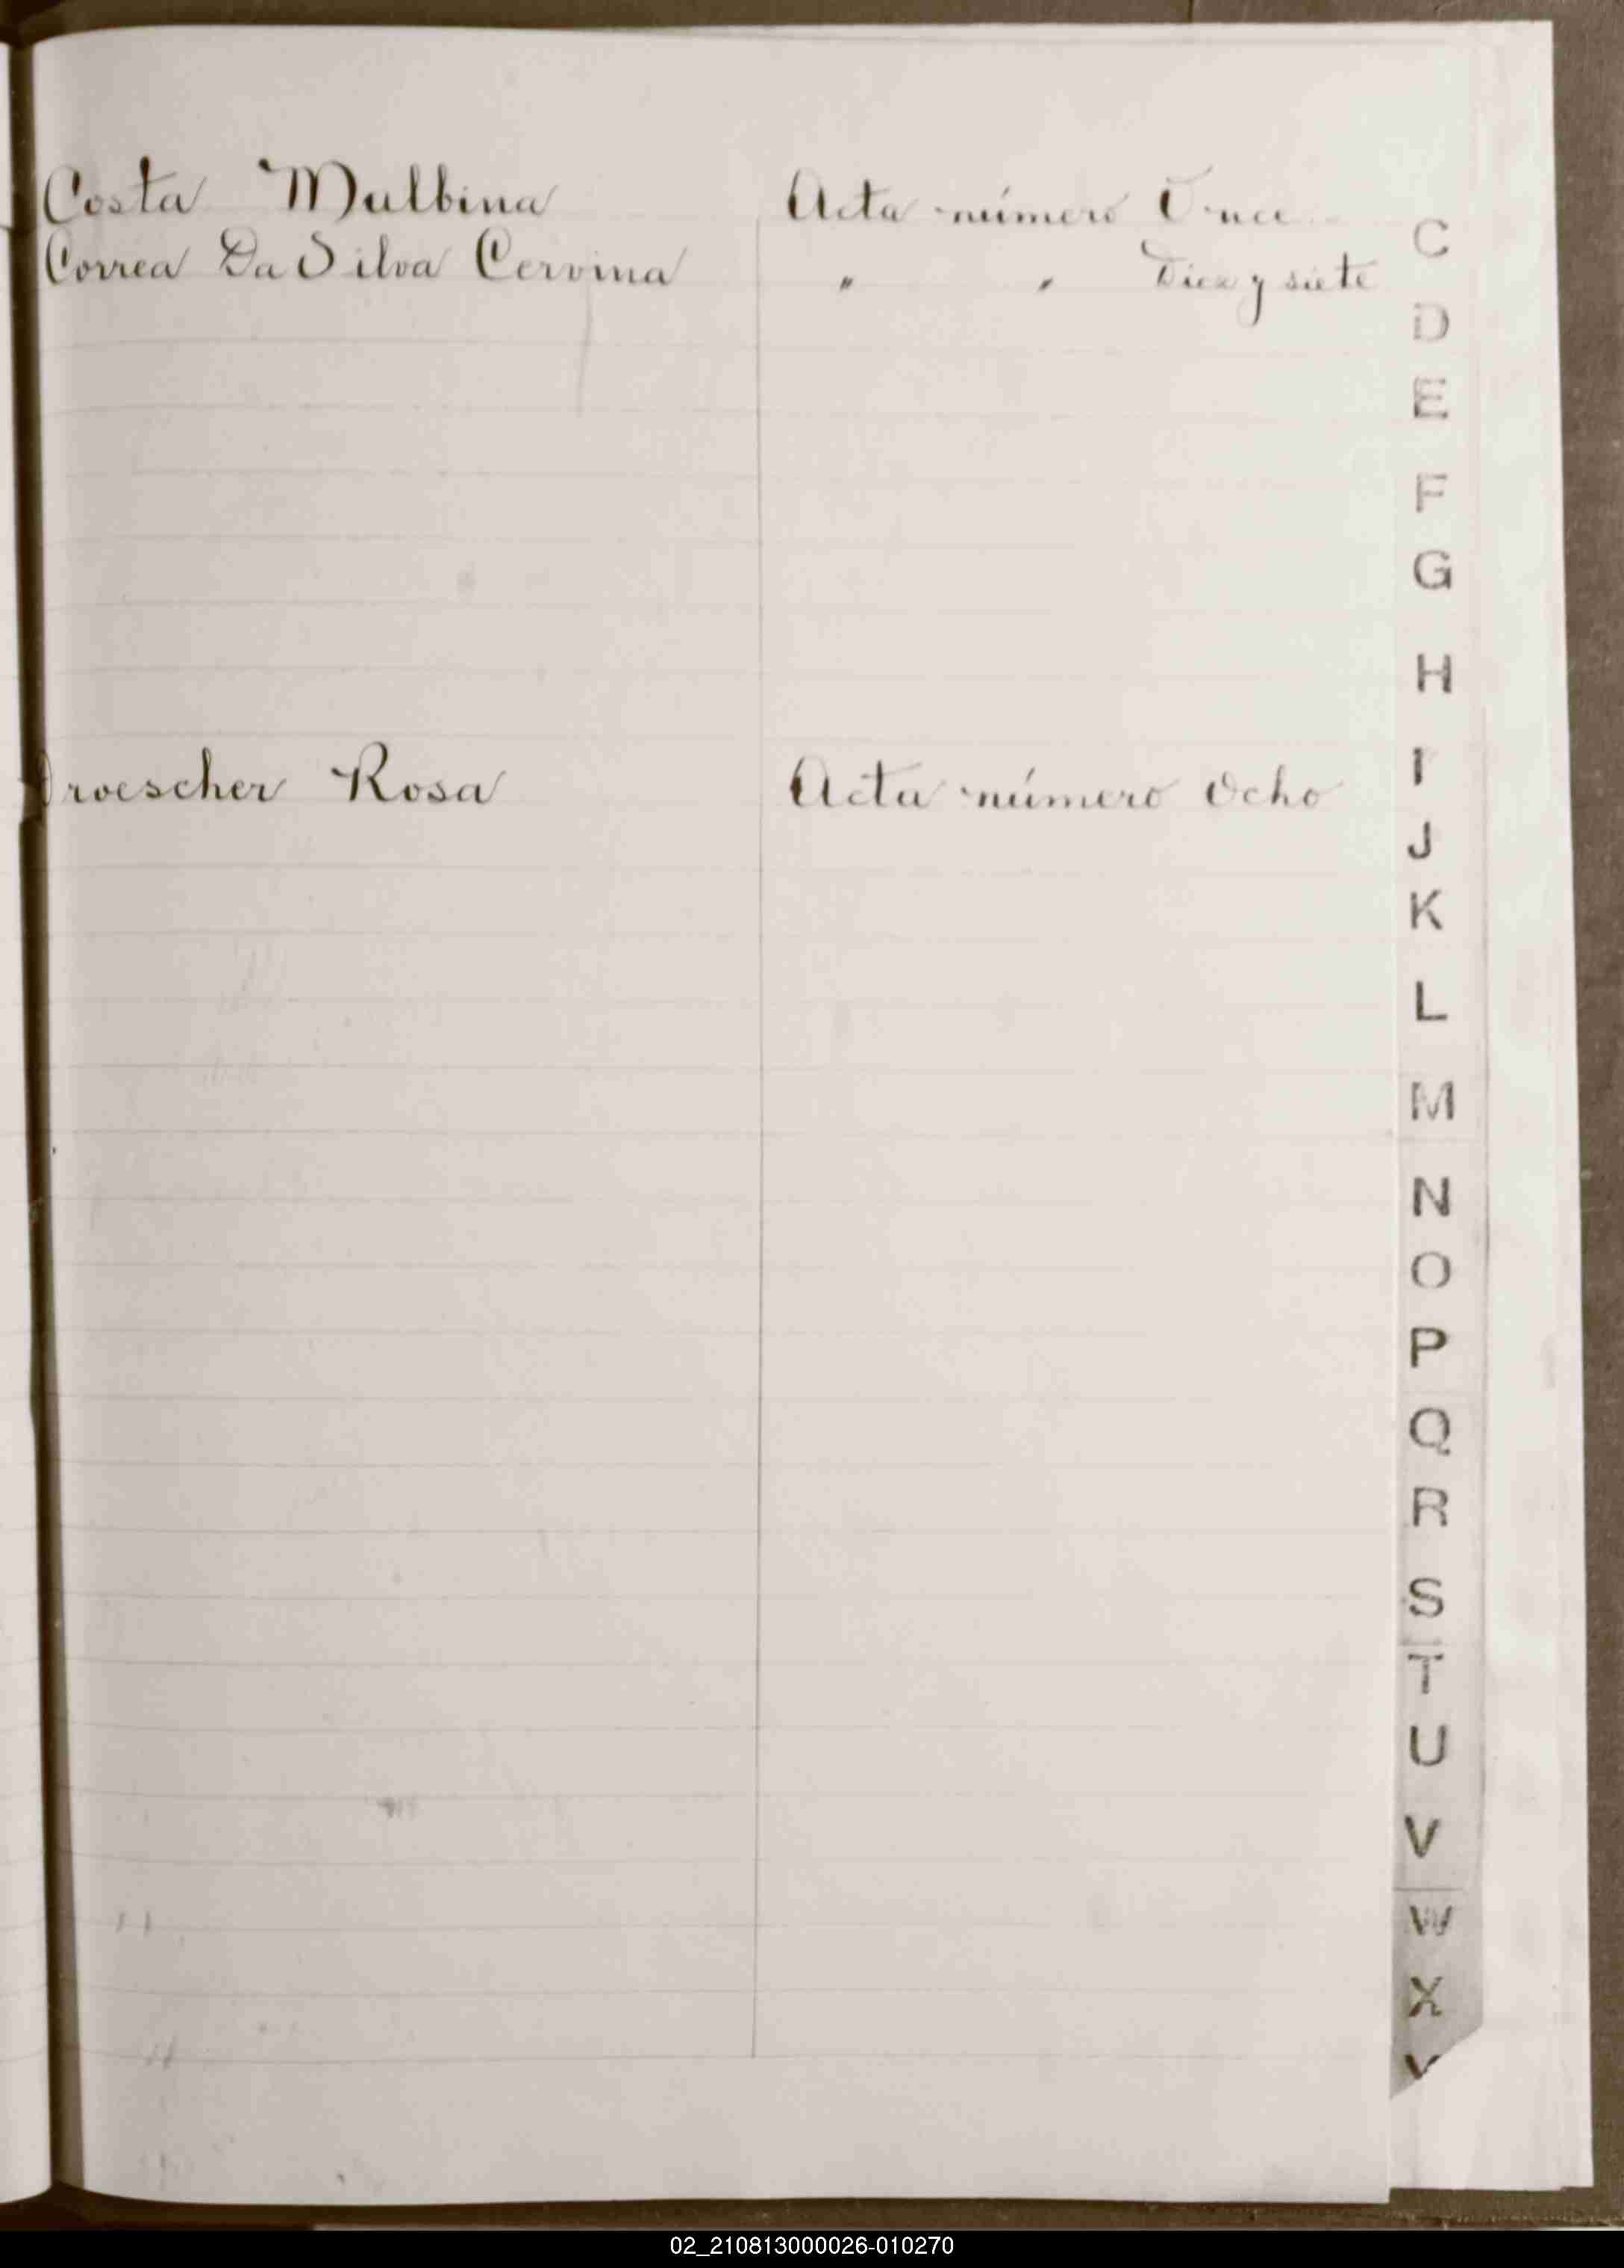 Costa Malbina Acta número Once
Correa Da Silva Cervina " " Diez y siete
roescher Rosa Acta número Ocho
C
D
E
F
G
H
I
J
K
L
M
N
O
P
Q
R
S
T
U
V
W
X
02_210813000026-010270